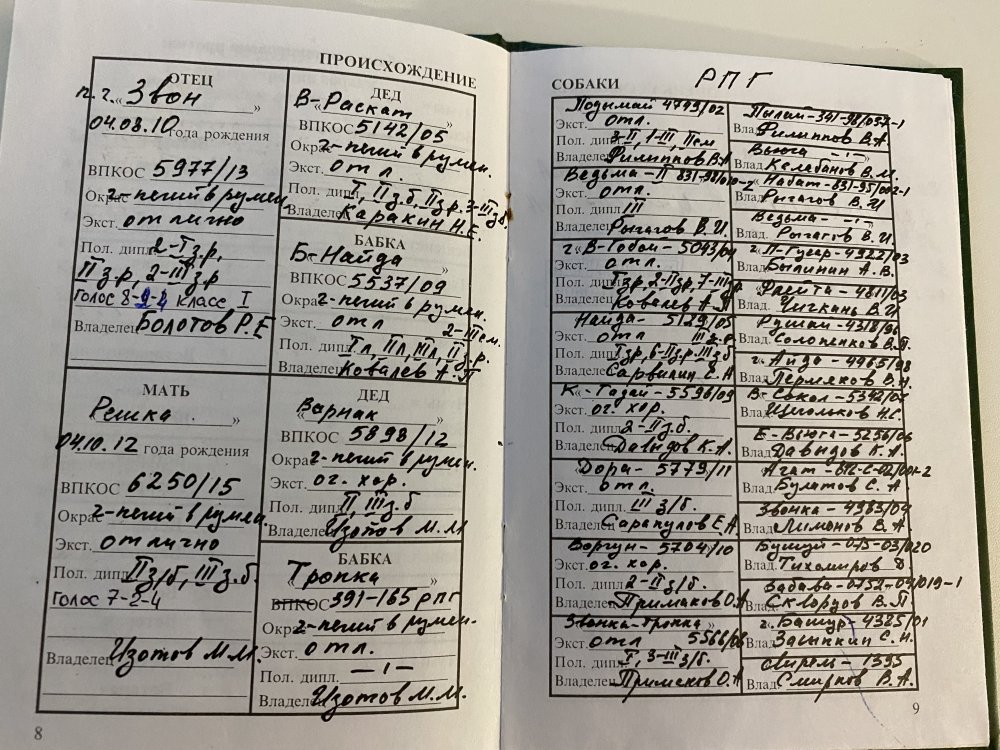 ПРОИСХОЖДЕНИЕ
ОТЕЦ
п.ч. „Звон"
04.08.10 года рождения
ВПКОС 5977/13
Окрас 2-пегий в румян.
Экст. отлично
Пол. дипл. 2-I з.р,
II з.р, 2-III з.р
Голос 8-2-4 класс I
Владелец Болотов Р.Е
МАТЬ
Решка "
04.10.12 года рождения
ВПКОС 6250/15
Окрас 2-пегий в румян.
Экст. отлично
Пол. дипл. II з/б, III з.б.
Голос 7-2-4
Владелец Изотов М.М.
8
ДЕД
В-Раскат
ВПКОС 5142/05
Окрас 2-пегий в румян.
Экст. отл.
Пол. дипл. I, II з.б, II з.р. 3-III з.б
Владелец Каракин Н.Е.
БАБКА
Б-Найда
ВПКОС 5537/09
Окрас 2-пегий в румян.
Экст. отл 2-III см.
Пол. дипл. I л, II л, III л, II з.р.
Владелец Ковалев А.П
ДЕД
„Варнак "
ВПКОС 5898/12
Окрас 2-пегий в румян.
Экст. оч. хор.
Пол. дипл. II, III з.б
Владелец Изотов М.М
БАБКА
Тропка "
ВПКОС 391-165 РПГ
Окрас 2-пегий в румян.
Экст. отл.
Пол. дипл. —ı—
Владелец Изотов М.М.
СОБАКИ РПГ
Подымай 4793/02
Экст. отл.
Пол. дипл. 3-II, 1-III, II см
Владелец Филиппов В.А
Ведьма-II 831-98/010-2
Экст. отл.
Пол. дипл. III
Владелец Рыгагов В.И.
г. В-Гобой-5043/04
Экст. отл.
I з.р, 2-II з.р, 7-III з.р
Ковалев А.П
Найда-5129/05
Экст. отл III з.р.
Пол. дипл. I з.р, 6-II з.р. III з.б
Владелец Сарвилин Е.А
К-Гадай-5596/09
Экст. оч. хор.
Пол. дипл. 2-II з.б.
Владелец Давыдов К.А.
Дора-5779/11
Экст. отл.
Пол. дипл. III з/б.
Владелец Сарапулов Е.А
Воргун-5704/10
Экст. оч. хор.
Пол. дипл. 2-II з/б.
Владелец Примаков О.А
Звонка-Тропка
Экст. отл 5566/08
Пол. дипл. I, 3-III з/б.
Владелец Примаков О.А
Пылай-341-98/037-1
Влад. Филиппов В.А
Вьюга —ı—
Влад. Келебанов В.М.
Набат-831-95/002-1
Влад. Рыгагов В.И
Ведьма —ı—
Влад. Рыгагов В.И.
г. П-Гусар-4922/03
Влад. Былинин А.В.
Флейта-4811/03
Влад. Чичкань В.И
Рушай-4318/96
Влад. Солопенков В.П.
г. Аида-4465/98
Влад. Пермяков В.Н.
В-Сокол-5342/07
Влад. Щегольков Н.С.
Е-Вьюга-5256/06
Влад. Давыдов К.А.
Агат-612-С-02/001-2
Влад. Булатов С.А
Звонка-4983/04
Влад. Лимонов В.А.
Бушуй-045-03/020
Влад. Тихомиров
Забава-0752-04/019-1
Влад. Скворцов В.П
г. Башур-4385/01
Влад. С.Н.
Свирель-1395
Влад. Смирнов В.А.
9